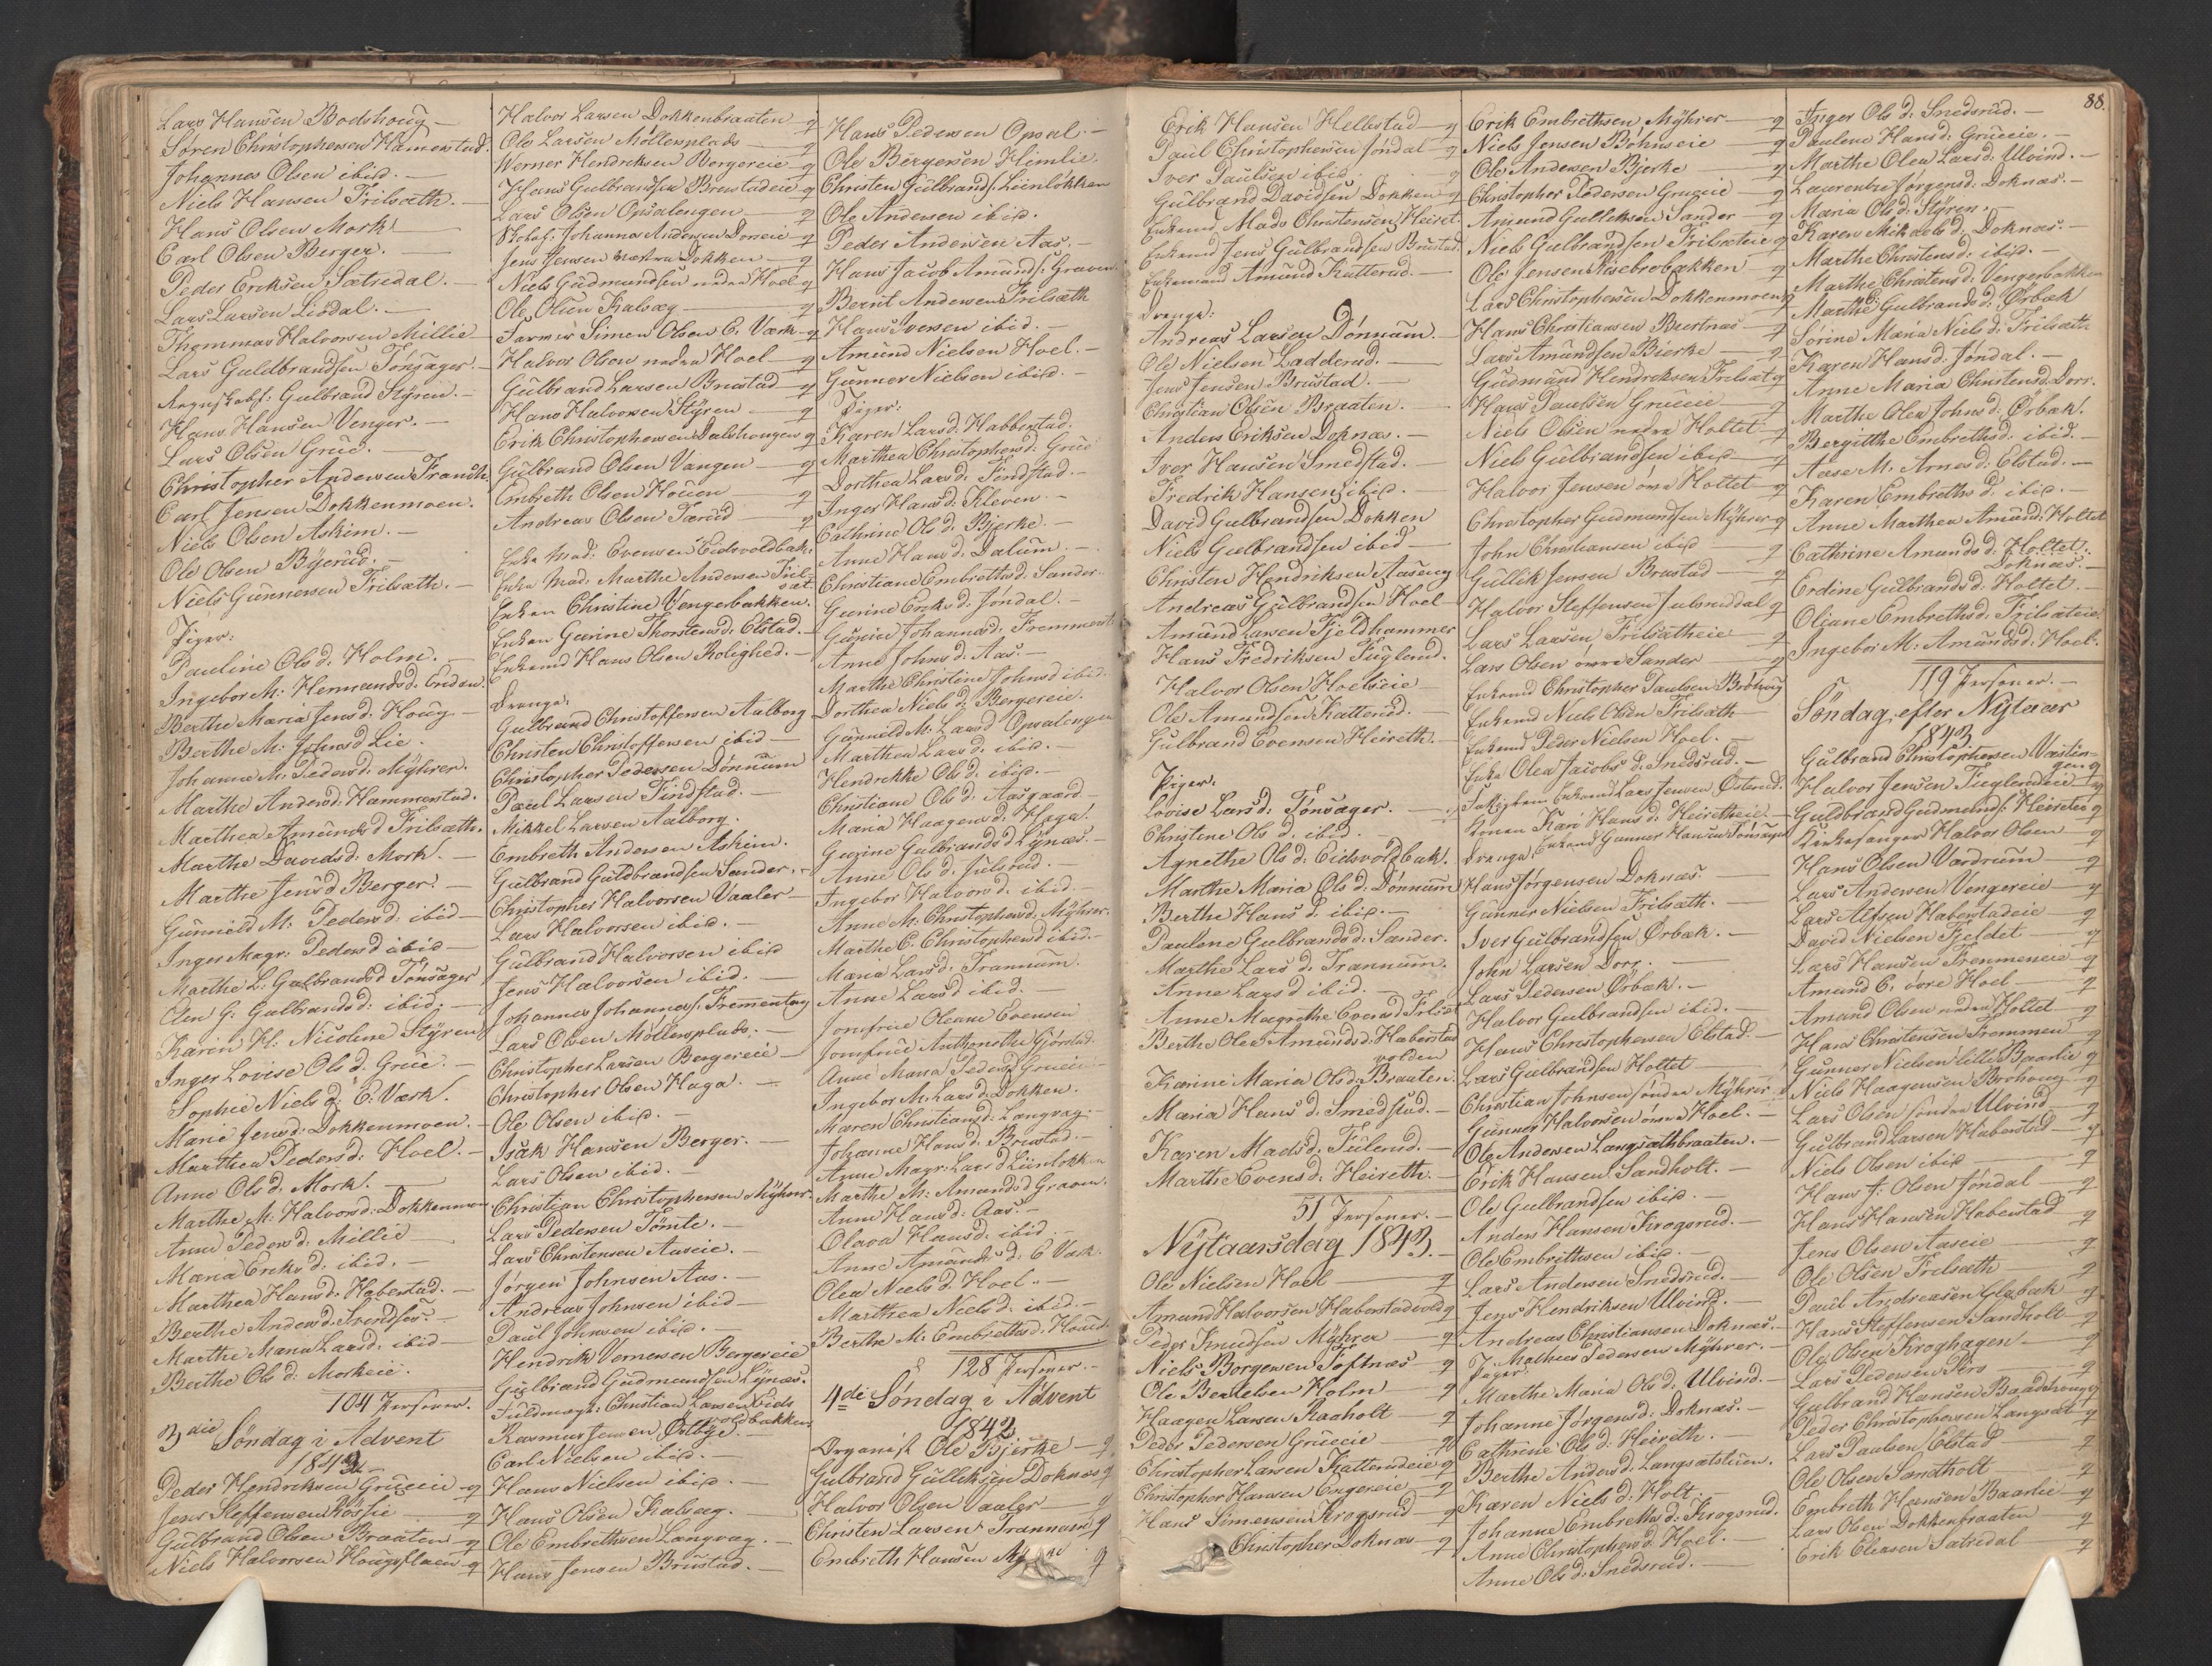 Lars Hansen Bodshoug —
Søren Christophersen Hamerstad.
Johannes Olsen ibid. —
Niels Hansen Frilsæth. —
Hans Olsen Mork —
Carl Olsen Berger. —
Peder Eriksen Sætredal. —
Lars Larsen Lisdal. —
Thommas Halvorsen Millie
Lars Guldbrandsen Tønsager. —
Gulbrand Styren. —
Hans Hansen Venger. —
Lars Olsen Grue. —
Christopher Andersen
Carl Jensen Dokkenmoen.
Niels Olsen Askim. —
Ole Olsen Byerud. —
Niels Gunnersen Frilsæth. —
Piger:
Pauline Ols d. Holm. —
Ingebor M: Hermands d.
Berthe Maria Jens d. Houg —
Berthe M. Johns d Lie.
Johanne M. Peders d. Myhrer.
Marthe Anders d. Hammerstad.
Marthea Amunds d Frilsæth.
Marthe Davids d. Mork. —
Marthe Jens d Berger. —
Gunnild M. Peders d. ibid —
Inger Magr: Peders d ibid —
Marthe L: Gulbrands d Tønsager
Elen G: Gulbrands d: ibid: —
Karen H: Nicoline Styren
Inger Lovise Ols d. Grue. —
Sophie Niels d: E: Værk.
Marie Jens d: Dokkenmoen. —
Marthea Peders d: Hoel. —
Anne Ols d. Mork. —
Marthe M: Halvors d: Dokkenmoen
Anne Peders d. Millie —
Maria Eriks d. ibid. —
Marthea Hans d. Haberstad. —
Berthe Anders d.
Marthe Maria Lars d. ibid —
Berthe Ols d: Morkeie.
104 Personer.
3die Søndag i Advent
1842
Peder Hendriksen Grueeie — g
Jens Steffensen g
Gulbrand Olsen Braaten — g
Niels Halvorsen Hougsflaen — g
Halvor Larsen Dokkenbraaten — g
Ole Larsen Möllersplads — g
Werner Hendriksen Bergereie — g
Hans Gulbrandsen Brustadeie g
Lars Olsen Opsalengen — g
Johannes Andersen g
Jens Jensen Dokken — g
Niels Gudmundsen nedre Hoel g
Ole Olsen Kalvag — g
Simen Olsen E. Værk — g
Halvor Olsen nedre Hoel — g
Gulbrand Larsen Brustad — g
Hans Halvorsen Styren — g
Erik Christophersen Dalshougen g
Gulbrand Olsen Vangen — g
Embreth Olsen Houen g
Andreas Olsen Tærud — g
Enke Mad: Evensen Eidsvoldbak:
Enke Mad. Marthe Andersen Frilsæt.
Enken Christine Vengerbakken.
Enken Gurine Thorstens d. Elstad. —
Enkemd Hans Olsen Rolighed. —
Drenge:
Gulbrand Christoffersen Aalborg
Christen Christoffersen ibid —
Christopher Pedersen Dønnum
Paul Larsen Findstad. —
Mikkel Larsen Aalborg.
Embreth Andersen Askim.
Gulbrand Guldbrandsen Sander. —
Christopher Halvorsen Vaaler —
Lars Halvorsen ibid. —
Gulbrand Halvorsen ibid
Jens Halvorsen ibid. —
Johannes Johannes:
Lars Olsen Möllersplads. —
Christopher Larsen Bergereie —
Christopher Olsen Haga. —
Ole Olsen ibid. —
Isak Hansen Berger. —
Lars Olsen ibid. —
Christian Christophersen Myhrer
Lars Pedersen Tømte. —
Lars Christensen Aaseie. —
Jørgen Johnsen Aas. —
Andreas Johnsen ibid —
Paul Johnsen ibid. —
Hendrik Vernersen Bergereie
Gulbrand Gudmundsen Lynæs.
Fuldmægt: Christian Larsen Eids
voldbakken
Rasmus Jensen Østbye. —
Carl Nielsen ibid. —
Hans Nielsen ibid. —
Hans Olsen Kalvag. —
Ole Embrethsen Langvag. —
Hans Jensen Brustad. —
Hans Pedersen Opsal. —
Ole Bergersen Himlie.
Christen Gulbrands: Liinløkken
Ole Andersen ibid.
Peder Andersen Aas. —
Hans Jacob Amunds: Graven
Bernt Andersen Frilsæth
Hans Iversen ibid. —
Amund Nielsen Hoel. —
Gunner Nielsen ibid. —
Piger:
Karen Lars d. Habberstad.
Marthea Christophers d. Grue
Dorthea Lars d. Findstad. —
Inger Hans d. Kleven. —
Cathrine Ols d. Bjerke. —
Anne Hans d. Dalum. —
Christiane Embreths d. Sander.
Gurine Eriks d. Jøndal. —
Gurine Johannes d.
Anne Johns d. Aas. —
Marthe Christine Johns d ibid.
Dorthea Niels d. Bergereie.
Gunnild M. Lars d Opsalengen
Marthea Lars d. ibid. —
Hendrikke Ols d. ibid. —
Christiane Ols d. Aasgaard —
Maria Haagens d. Haga.
Gurine Gulbrands d Lynæs. —
Anne Ols d. Julsrud. —
Ingebor Halvors d. ibid. —
Anne M. Christophers d. Myhrer.
Marthe C. Christophers d ibid. —
Maria Lars d. Trannum.
Anne Lars d ibid. —
Jomfrue Oleane Evensen
Jomfrue Anthonette
Anne Maria Peders d Grueeie
Ingebor M. Lars d. Dokken.
Maren Christians d. Langvag. —
Johanne Hans d. Brustad. —
Anne Magr: Lars d Liinløkken
Marthe M: Amunds d Graven.
Anne Hans d: Aas. —
Olava Hans d: ibid. —
Anne Amunds d. E Værk.
Olea Niels d. Hoel. —
Marthea Niels d. ibid. —
Berthe M: Embreths d.
128 Personer. —
4de Søndag i Advent
1842
Organist Ole Bjerke — g
Gulbrand Gulliksen Doknæs g
Halvor Olsen Vaaler — g
Christen Larsen Trannum g
Embreth Hansen g
88.
Erik Hansen Helbstad — g
Paul Christophersen Jøndal — g
Iver Paulsen ibid g
Gulbrand Davidsen Dokken — g
Enkemd Mads Christensen Heiret.
Enkemd Jens Gulbrandsen Brustad.
Enkemand Amund Katterud. —
Drenge:
Andreas Larsen Dønnum. —
Ole Nielsen Ladderud. —
Jens Jensen Brustad. —
Christian Olsen Braaten. —
Anders Eriksen Doknæs. —
Iver Hansen Smedstad. —
Fredrik Hansen ibid. —
David Gulbrandsen Dokken
Niels Gulbrandsen ibid —
Christen Hendriksen Aaseng
Andreas Gulbrandsen Hoel —
Amund Larsen Fjeldhammer
Hans Fredriksen Fuglerud.
Halvor Olsen Hoelseie —
Ole Amundsen Katterud. —
Gulbrand Evensen Heireth. —
Piger:
Lovise Lars d. Tønsager. —
Christine Ols d. ibid. —
Agnethe Ols d. Eidsvoldbak.
Marthe Maria Ols d. Dønnum
Berthe Hans d. ibid. —
Paulene Gulbrands d. Sander.
Marthe Lars d. Trannum.
Anne Lars d ibid. —
Anne Magrethe Evens d Frilsæt
Berthe Olea Amunds d. Haberstad
volden
Karine Maria Ols d. Braaten.
Maria Hans d. Smedstad. —
Karen Mads d. Julsrud. —
Marthe Evens d. Heireth. —
51 Personer. —
Nytaarsdag 1843. —
Ole Nielsen Hoel — g
Amund Halvorsen Haberstadvold g
Peder Knudsen Myhrer — g
Niels Borgersen Toftnæs — g
Ole Bertelsen Holm — g
Haagen Larsen Raaholt — g
Peder Pedersen Grueeie — g
Christopher Larsen Katterudeie g
Christopher Hansen Engereie — g
Hans Simensen Krogsrud — g
Christopher Doknæs — g
Erik Embrethsen Myhrer — g
Niels Jensen Bøhnseie — g
Ole Andersen Bjerke — g
Christopher Pedersen Grueeie — g
Amund Gulliksen Sander — g
Niels Gulbrandsen Frilsæteie g
Ole Jensen Risebrobakken — g
Lars Christophersen Dokkenmoen g
Hans Christiansen Buertnæs — g
Lars Amundsen Bjerke — g
Gudmund Hendriksen Frilsæt g
Hans Paulsen Grueeie — g
Niels Olsen nedre Holtet — g
Niels Gulbrandsen ibid — g
Halvor Jensen øvre Holtet — g
Christopher Gudmundsen Myhrer g
John Christiansen ibid — g
Gullik Jensen Brustad — g
Halvor Steffensen Julsruddal g
Lars Larsen Frilsætheie — g
Lars Olsen øvre Sander — g
Enkemd Christopher Paulsen Bröhaug
Enkemd Niels Olsen Frilsæth —
Enkemd Peder Nielsen Hoel. —
Enke Olea Jacobs d. Snedsrud. —
Enkemd Lars Jensen Østerud.
Konen Kari Hans d. Heiretheie —
Drenge. Enkemd Gunner Hansen Tønsager
Hans Jørgensen Doknæs. —
Gunner Nielsen Frilsæth. —
Iver Gulbrandsen Ørbæk. —
John Larsen Dorr. —
Lars Pedersen Ørbæk. —
Halvor Gulbrandsen ibid. —
Hans Christophersen Elstad. —
Lars Gulbrandsen Holtet —
Christian Johnsen søndre Myhrer
Gunner Halvorsen øvre Hoel. —
Ole Andersen Langsæthbraaten. —
Erik Hansen Sandholt. —
Ole Gulbrandsen ibid. —
Anders Hansen Krogsrud. —
Ole Embrethsen ibid. —
Lars Andersen Snedsrud. —
Jens Hendriksen Ulvind. —
Andreas Christiansen Doknæs. —
J. Mathias Pedersen Myhrer. —
Piger:
Marthe Maria Ols d. Ulvind. —
Johanne Jørgens d. Doknæs. —
Cathrine Ols d. Heireth. —
Berthe Anders d. Langsætstuen.
Karen Niels d. Holt. —
Johanne Embreths d. Krogsrud.
Anne Christophers d. Hoel.
Anne Ols d. Snedsrud. —
Inger Ols d. Snedsrud. —
Paulene Hans d. Grueeie. —
Marthe Olea Lars d. Ulvind. —
Laurentse Jørgens d. Doknæs. —
Maria Ols d. Styren. —
Karen Mikaels d. Doknæs. —
Marthe Christens d. ibid. —
Marthe Christens d. Vengerbakken
Marthe Gulbrands d. Ørbæk
Sørine Maria Niels d. Frilsæth
Karen Hans d. Jøndal. —
Anne Maria Christens d. Dorr.
Marthe Olea Johns d. Ørbæk.
Bergitthe Embreths d. ibid. —
Aase M. Arnes d. Elstad. —
Karen Embreths d. ibid. —
Anne Marthea Amund: Holtet
Cathrine Amunds d. Holtet.
Doknæs. —
Erdine Gulbrands d. Holtet. —
Oliane Embreths d. Frilsæteie
Ingebor M. Amunds d. Hoel.
119 Personer. —
Søndag efter Nytaar
1843
Gulbrand Christophersen Væstengen g
Halvor Jensen Fuglerudeie g
Guldbrand Gudmunds: Heireteie g
Kirkesanger Halvor Olsen g
Hans Olsen Vardrum — g
Lars Andersen Vengereie — g
Lars Alfsen Haberstadeie — g
David Nielsen Fjeldet — g
Lars Hansen Fremmeneie — g
Amund E. øvre Hoel — g
Amund Olsen nedre Holtet — g
Hans Christensen Fremmen — g
Gunner Nielsen lille Baarlie g
Niels Haagensen Brohoug — g
Lars Olsen søndre Ulvind — g
Gulbrand Larsen Haberstad — g
Niels Olsen ibid — g
Hans J: Olsen Jøndal — g
Hans Hansen Haberstad g
Jens Olsen Aaseie — g
Ole Olsen Frilsæth — g
Paul Andreasen Glæbæk — g
Hans Steffensen Sandholt g
Ole Olsen Kroghagen — g
Lars Pedersen Piro — g
Gulbrand Hansen Baadshoug g
Peder Christophersen Langsæt g
Lars Paulsen Elstad — g
Ole Olsen Sandholt — g
Embreth Hansen Baarlie — g
Lars Olsen Dokkenbraaten — g
Erik Eliasen Sætredal — g